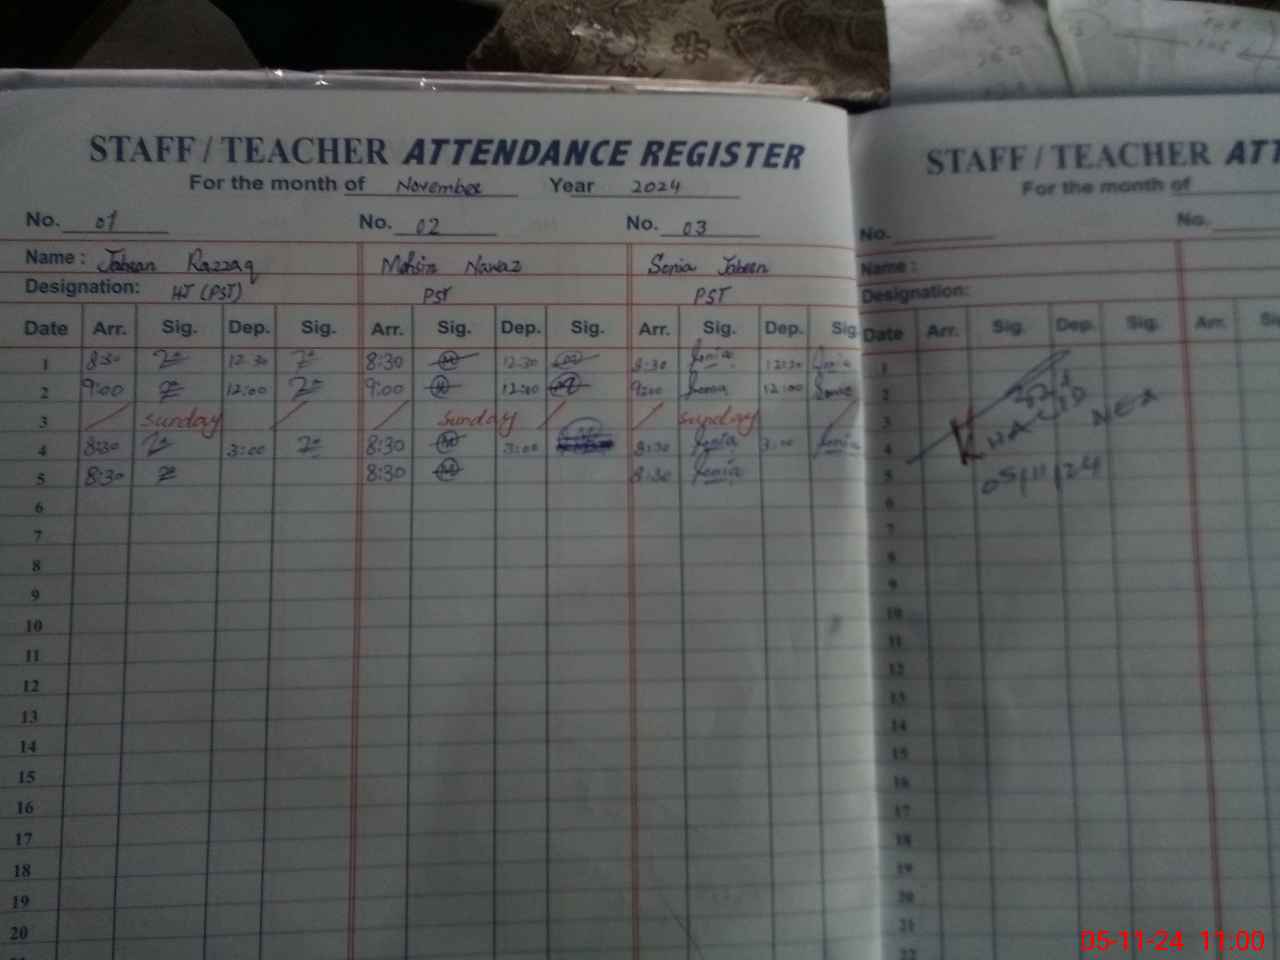 STAFF / TEACHER ATTENDANCE REGISTER
For the month of November Year 2024
No. 01 No. 02 No. 03
Name : Jabran Razzaq Mohsin Nawaz Sonia Jabeen
Designation: HT (PST) PST PST
Date Arr. Sig. Dep. Sig. Arr. Sig. Dep. Sig. Arr. Sig. Dep. Sig.
1 8:30 12:30 8:30 M 12:30 8:30 Sonia 12:30 Sonia
2 9:00 12:00 9:00 M 12:00 9:00 Sonia 12:00 Sonia
3 Sunday Sunday Sunday
4 8:30 3:00 8:30 M 3:00 8:30 Sonia 3:00 Sonia
5 8:30 8:30 M 8:30 Sonia
6
7
8
9
10
11
12
13
14
15
16
17
18
19
20
STAFF / TEACHER ATT
For the month of
No. No.
Name :
Designation:
Date Arr. Sig. Dep. Sig. Arr.
1
2
3
4
5
05/11/24
6
7
8
9
10
11
12
13
14
15
16
17
18
19
20
21
22
05-11-24 11:00